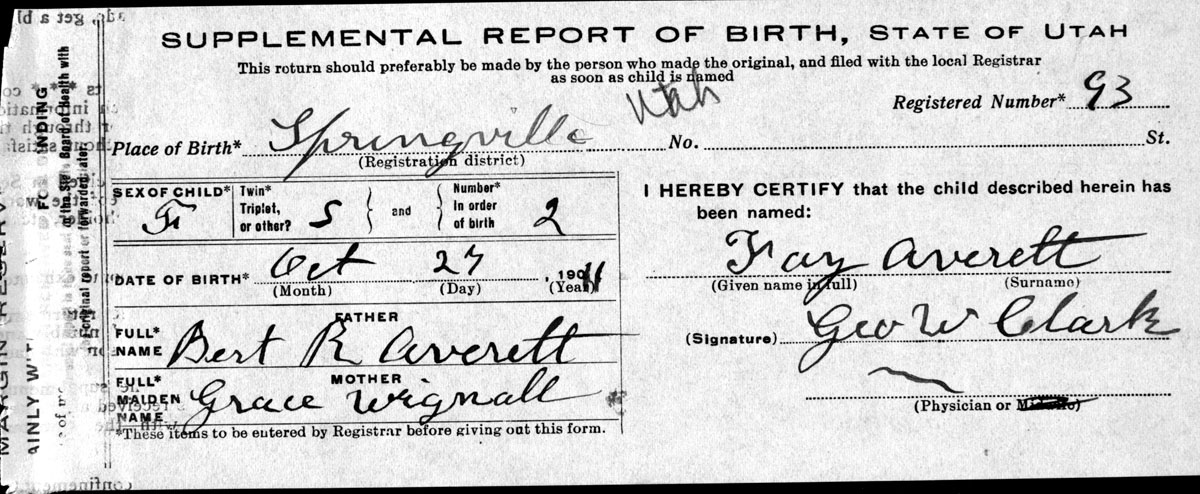 SUPPLEMENTAL REPORT OF BIRTH, STATE OF UTAH
This return should preferably be made by the person who made the original, and filed with the local Registrar
as soon as child is named
Utah
Registered Number* 93
Place of Birth* Springville No. St.
(Registration district)
SEX OF CHILD* F
Twin* Triplet, or other? S
and
Number* In order of birth 2
I HEREBY CERTIFY that the child described herein has
been named:
DATE OF BIRTH* Oct 27, 1911
(Month) (Day) (Year)
Fay Averett
(Given name in full) (Surname)
FATHER
FULL* NAME Bert R Averett
(Signature) Geo W Clark
MOTHER
FULL* MAIDEN NAME Grace Wignall
(Physician or
*These items to be entered by Registrar before giving out this form.